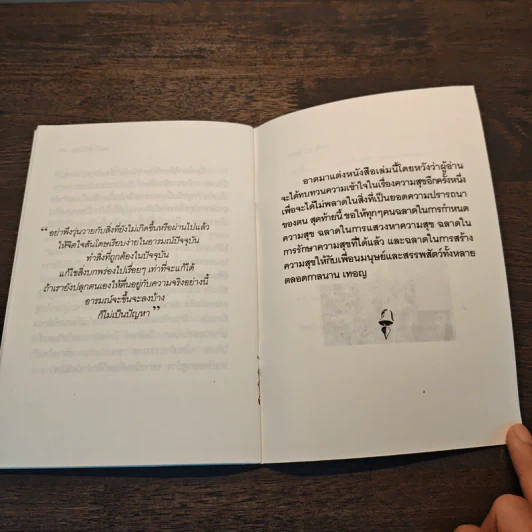 “ อย่าพึงวุ่นวายกับสิ่งที่ยังไม่เกิดขึ้นหรือผ่านไปแล้ว
ให้จิตใจสันโดษเรียบง่ายในอารมณ์ปัจจุบัน
ทำสิ่งที่ถูกต้องในปัจจุบัน
แก้ไขสิ่งบกพร่องไปเรื่อยๆ เท่าที่จะแก้ได้
ถ้าเรายังปลุกตนเองให้ตื่นอยู่กับความจริงอย่างนี้
อารมณ์จะขึ้นจะลงบ้าง
ก็ไม่เป็นปัญหา ”
อาตมาแต่งหนังสือเล่มนี้โดยหวังว่าผู้อ่าน
จะได้ทบทวนความเข้าใจในเรื่องความสุขอีกครั้งหนึ่ง
เพื่อจะได้ไม่พลาดในสิ่งที่เป็นยอดความปรารถนา
ของตน สุดท้ายนี้ ขอให้ทุกๆคนฉลาดในการกำหนด
ความสุข ฉลาดในการแสวงหาความสุข ฉลาดใน
การรักษาความสุขที่ได้แล้ว และฉลาดในการสร้าง
ความสุขให้กับเพื่อนมนุษย์และสรรพสัตว์ทั้งหลาย
ตลอดกาลนาน เทอญ